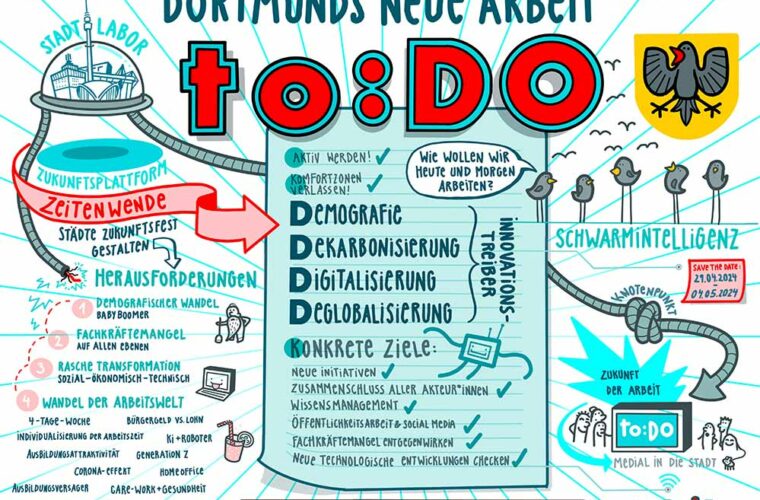 DORTMUNDS NEUE ARBEIT
to:DO
STADTLABOR
ZUKUNFTSPLATTFORM
ZEITENWENDE
STÄDTE ZUKUNFTSFEST
GESTALTEN
HERAUSFORDERUNGEN
1 DEMOGRAFISCHER WANDEL
BABYBOOMER
2 FACHKRÄFTEMANGEL
AUF ALLEN EBENEN
3 RASCHE TRANSFORMATION
SOZIAL-ÖKONOMISCH-TECHNISCH
4 WANDEL DER ARBEITSWELT
4-TAGE-WOCHE BÜRGERGELD VS. LOHN
INDIVIDUALISIERUNG DER ARBEITSZEIT KI+ROBOTER
AUSBILDUNGSATTRAKTIVITÄT GENERATION Z
CORONA-EFFEKT HOMEOFFICE
AUSBILDUNGSVERSAGER CARE-WORK+GESUNDHEIT
AKTIV WERDEN!
KOMFORTZONEN
VERLASSEN!
WIE WOLLEN WIR
HEUTE UND MORGEN
ARBEITEN?
DEMOGRAFIE
DEKARBONISIERUNG
DIGITALISIERUNG
DEGLOBALISIERUNG
INNOVATIONS-
TREIBER
KONKRETE ZIELE:
NEUE INITIATIVEN
ZUSAMMENSCHLUSS ALLER AKTEUR*INNEN
WISSENSMANAGEMENT
ÖFFENTLICHKEITSARBEIT & SOCIAL MEDIA
FACHKRÄFTEMANGEL ENTGEGENWIRKEN
NEUE TECHNOLOGISCHE ENTWICKLUNGEN CHECKEN
SCHWARMINTELLIGENZ
SAVE THE DATE:
29.04.2024
-
04.05.2024
KNOTENPUNKT
ZUKUNFT
DER ARBEIT
to:DO
MEDIAL IN DIE STADT